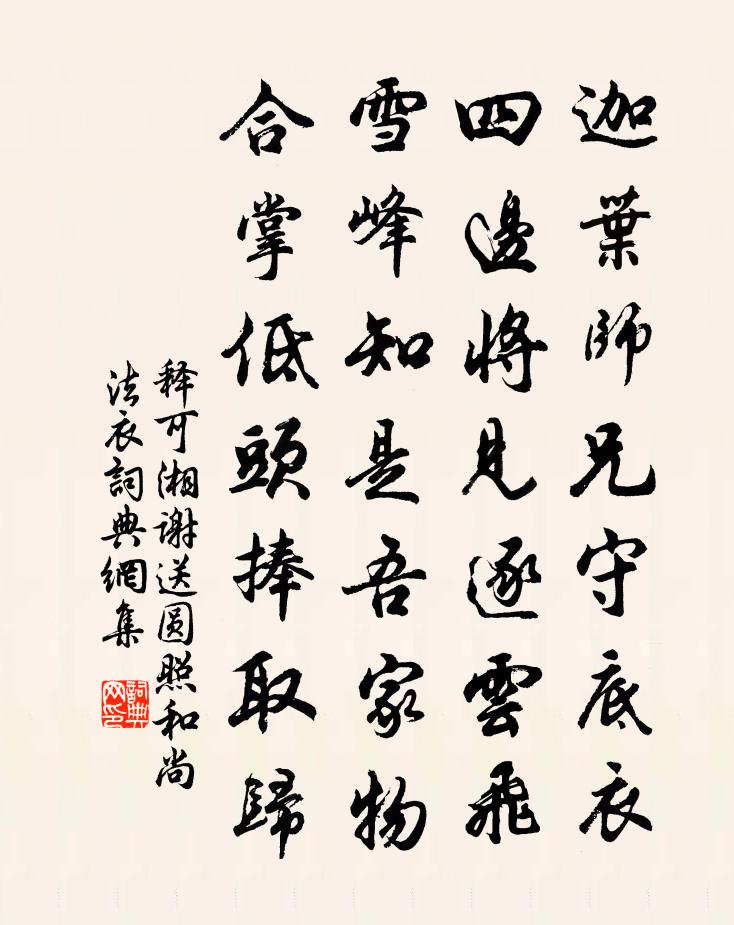 迦葉師兄守底衣
四邊將見逐雲飛
雪峰知是吾家物
合掌低頭捧取歸
释可湘謝送圓照和尚
法衣詞典網集
詞典
网印